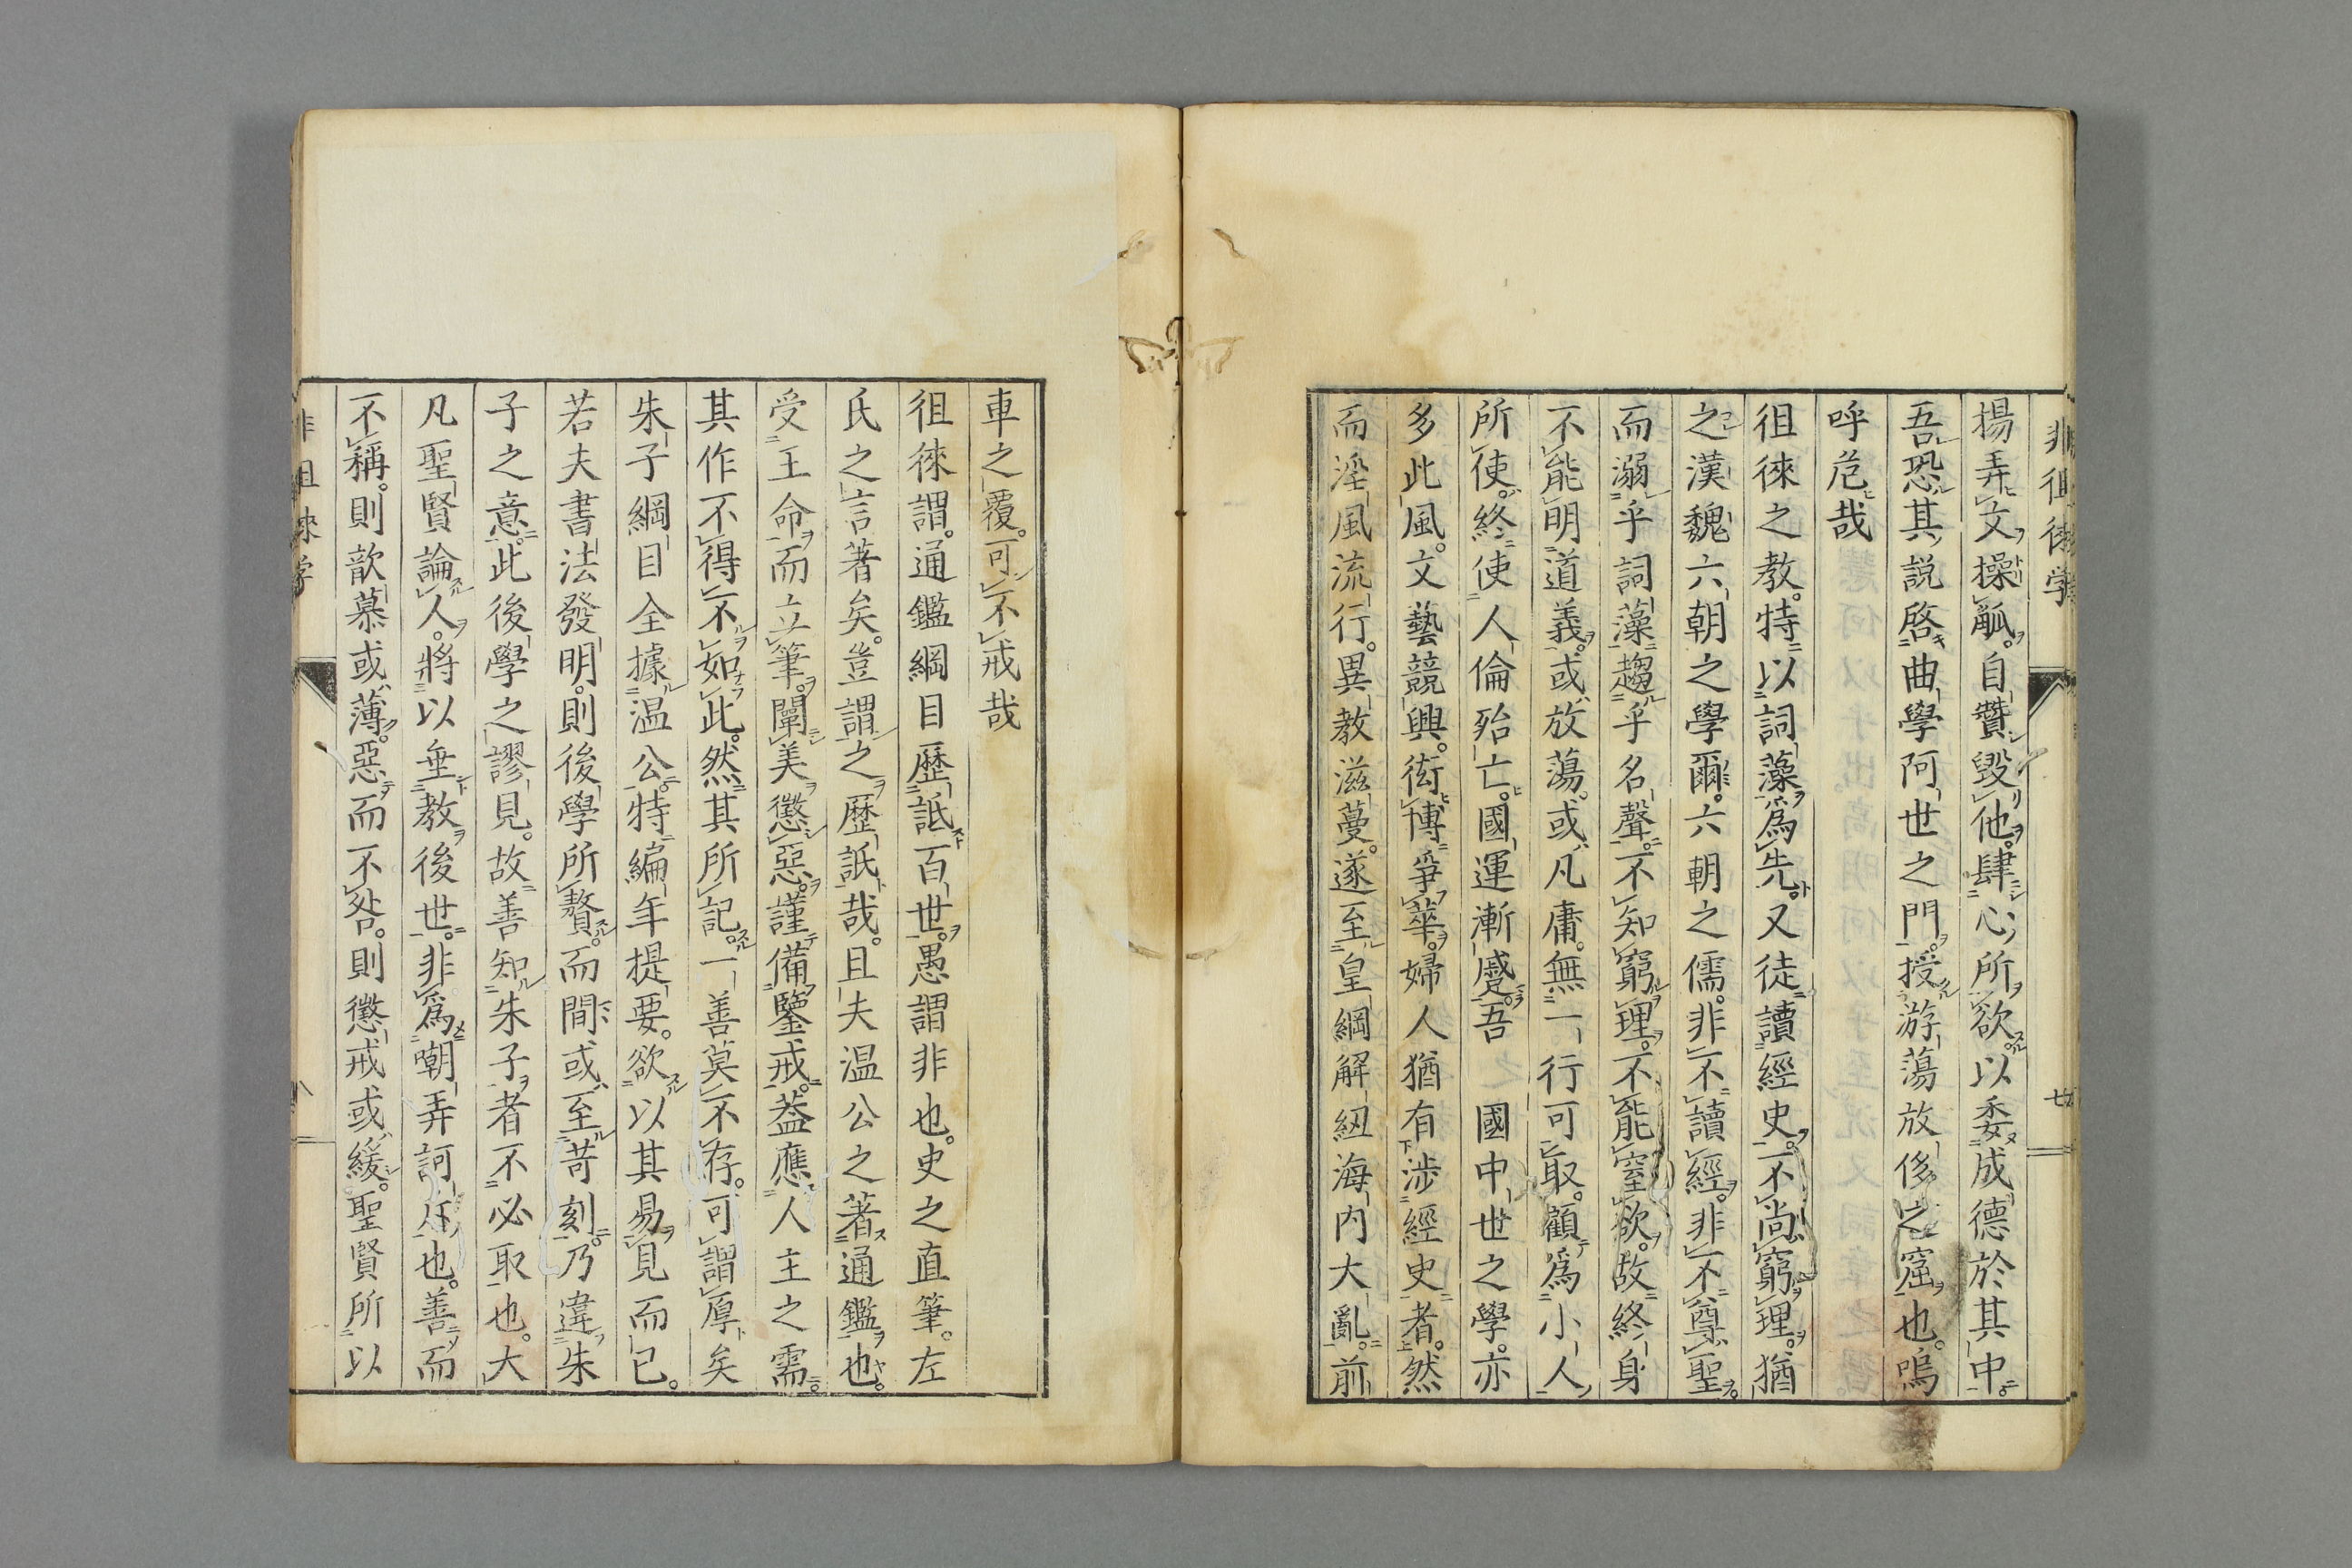 非徂徠学
揚弄文操觚。自贊毀他。肆心所欲。以委成德於其中。
吾恐其說啓曲學阿世之門。授游蕩放侈之窟也。嗚
呼危哉
徂徠之教。特以詞藻爲先。又徒讀經史。不尚窮理。猶
之漢魏六朝之學爾。六朝之儒。非不讀經。非不尊聖。
而溺乎詞藻趨乎名聲。不知窮理。不能窒欲。故終身
不能明道義。或放蕩。或凡庸。無一行可取。顧爲小人
所使。終使人倫殆亡。國運漸蹙。吾 國中世之學。亦
多此風。文藝競興。衒博爭華。婦人猶有涉經史者。然
而淫風流行。異教滋蔓。遂至皇綱解紐海内大亂。前
車之覆。可不戒哉
徂徠謂。通鑑綱目歷詆百世。愚謂非也。史之直筆。左
氏之言著矣。豈謂之歷詆哉。且夫温公之著通鑑也。
受王命而立筆。闡美懲惡。謹備鑒戒。葢應人主之需。
其作不得不如此。然其所記。一善莫不存。可謂厚矣
朱子綱目全據温公。特編年提要。欲以其易見而已。
若夫書法發明。則後學所贅。而間或至苛刻。乃違朱
子之意。此後學之謬見。故善知朱子者不必取也。大
凡聖賢論人。將以垂教後世。非爲嘲弄訶斥也。善而
不稱。則歆慕或薄。惡而不咎。則懲戒或緩。聖賢所以
非徂徠学